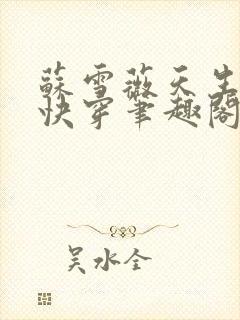 蘇雪薇天生
快穿筆趣閣
吴水全